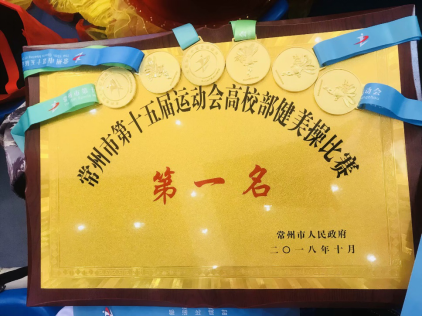 常州市第十五届运动会高校部健美操比赛
第一名
常州市人民政府
二〇一八年十月